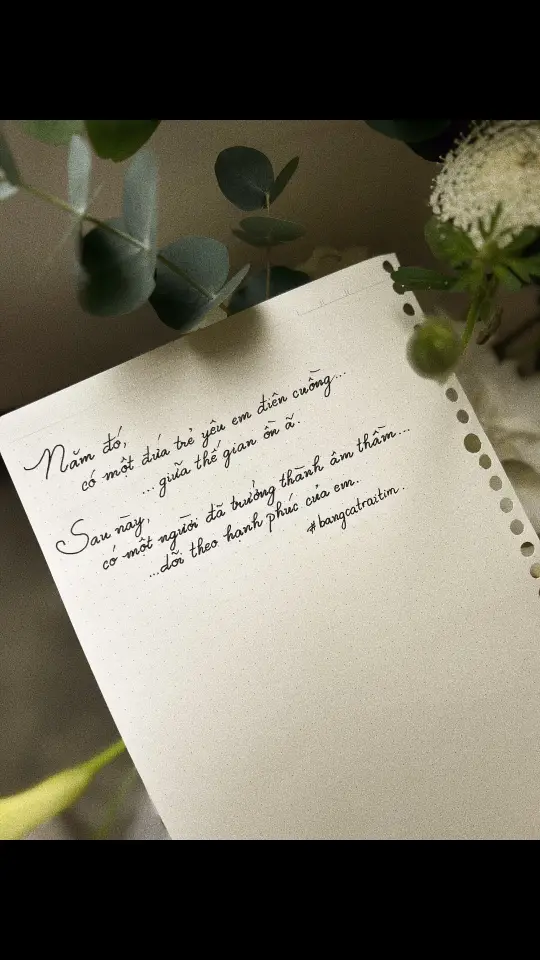 Năm đó,
có một đứa trẻ yêu em điên cuồng...
...giữa thế gian ồn ã.
Sau này,
có một người đã trưởng thành âm thầm...
...dõi theo hạnh phúc của em.
#bangcatraitim.